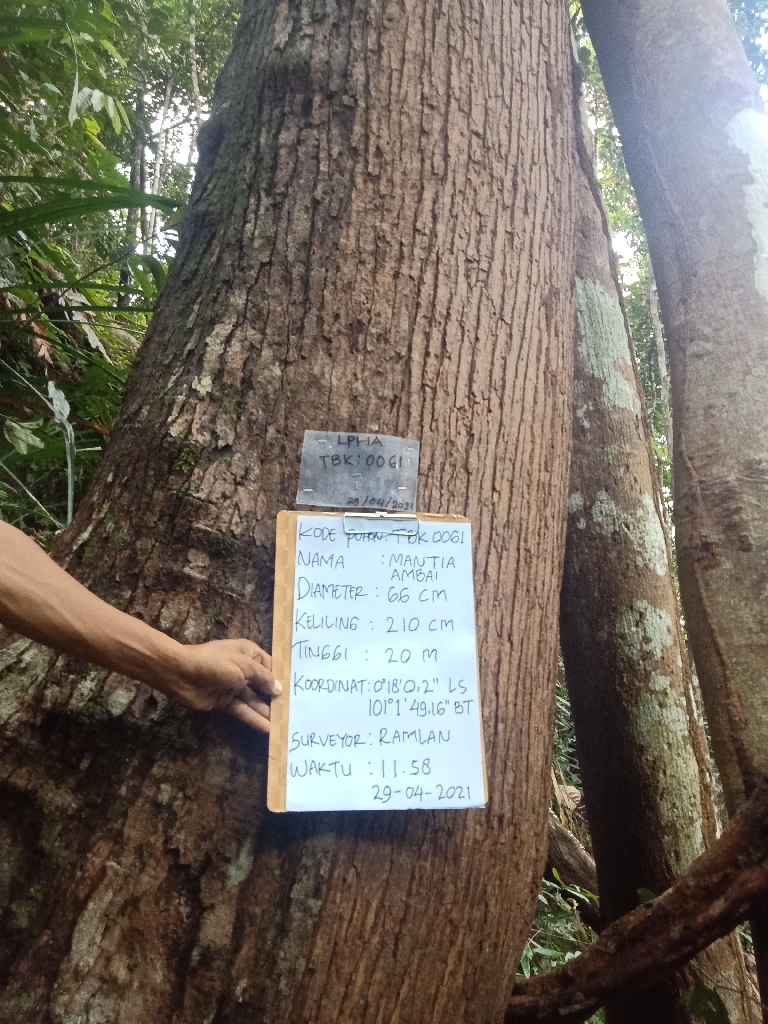 LPHA
TBK:0061
29/04/2021
KODE POHON: TBK 0061
NAMA : MANTIA
AMBAI
DIAMETER : 66 CM
KELILING : 210 CM
TINGGI : 20 M
KOORDINAT: 0°18'0,2" LS
101°1'49.16" BT
SURVEYOR: RAMLAN
WAKTU : 11.58
29-04-2021